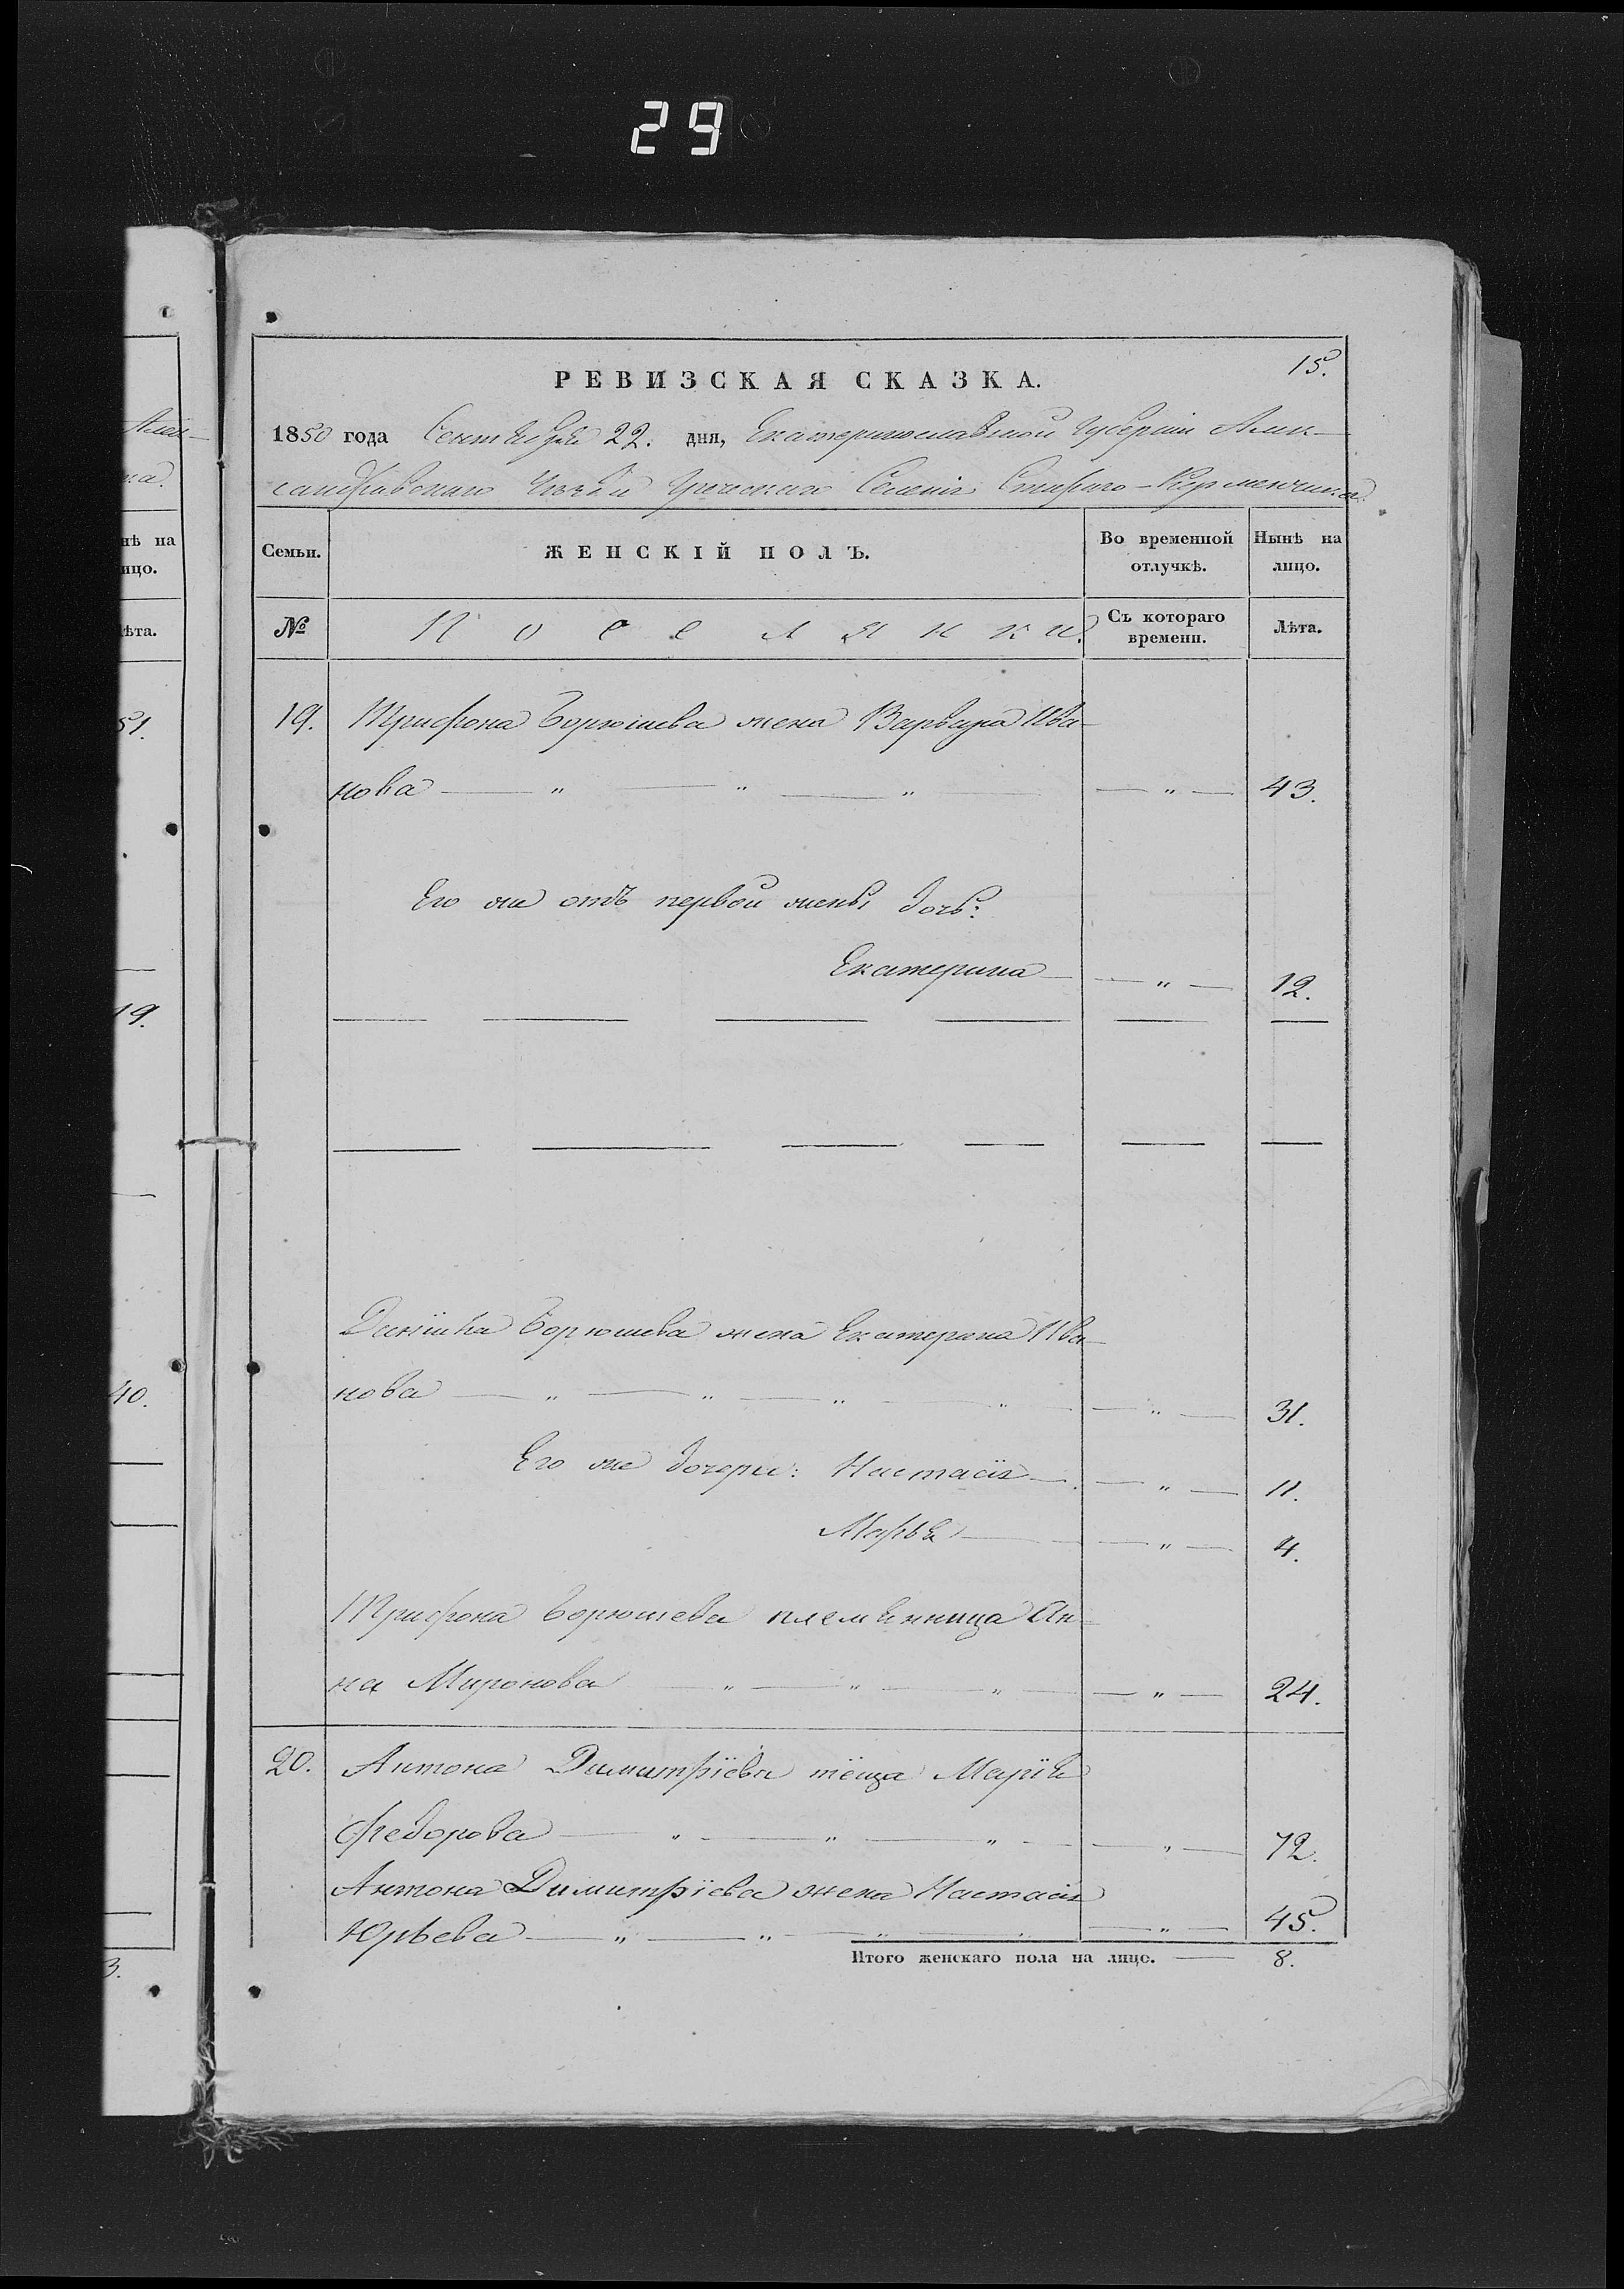 29
15.
РЕВИЗСКАЯ СКАЗКА.
1850 года Сентября 22. дня, Екатеринославской Губерніи Алек-
сандровскаго Уѣзда Греческаго Селенія Стараго-Керменчика.
Семьи.
ЖЕНСКІЙ ПОЛЪ.
Во временной отлучкѣ.
Нынѣ на лицо.
№
Поселянки.
Съ котораго времени.
Лѣта.
19. Трифона Борюшева жена Варвара Ива-
нова — " — " — " — — " — 43.
Его же отъ первой жены дочь:
Екатерина — — " — 12.
Борюшева жена Екатерина Ива-
нова — " — " — " — " — — " — 31.
Его же дочери: Настасія — — " — 11.
Марья — — " — 4.
Трифона Борюшева племянница Ан-
на Миронова — " — " — " — — " — 24.
20. Антона Димитріева тёща Марія
Федорова — " — " — " — — " — 72.
Антона Димитріева жена Настасія
Юрьева — " — " — " — " — — " — 45.
Итого женскаго пола на лицо. — 8.